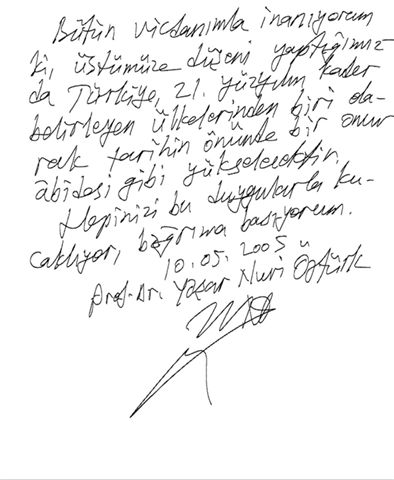 Bütün vicdanımla inanıyorum
ki, üstümüze düşeni yaptığımız-
da Türkiye, 21. yüzyılın kader
belirleyen ülkelerinden biri ola-
rak tarihin önünde bir onur
âbidesi gibi yükselecektir.
Hepinizi bu duygularla ku-
caklıyor, bağrıma basıyorum.
10.05.2005
Prof. Dr. Yaşar Nuri Öztürk